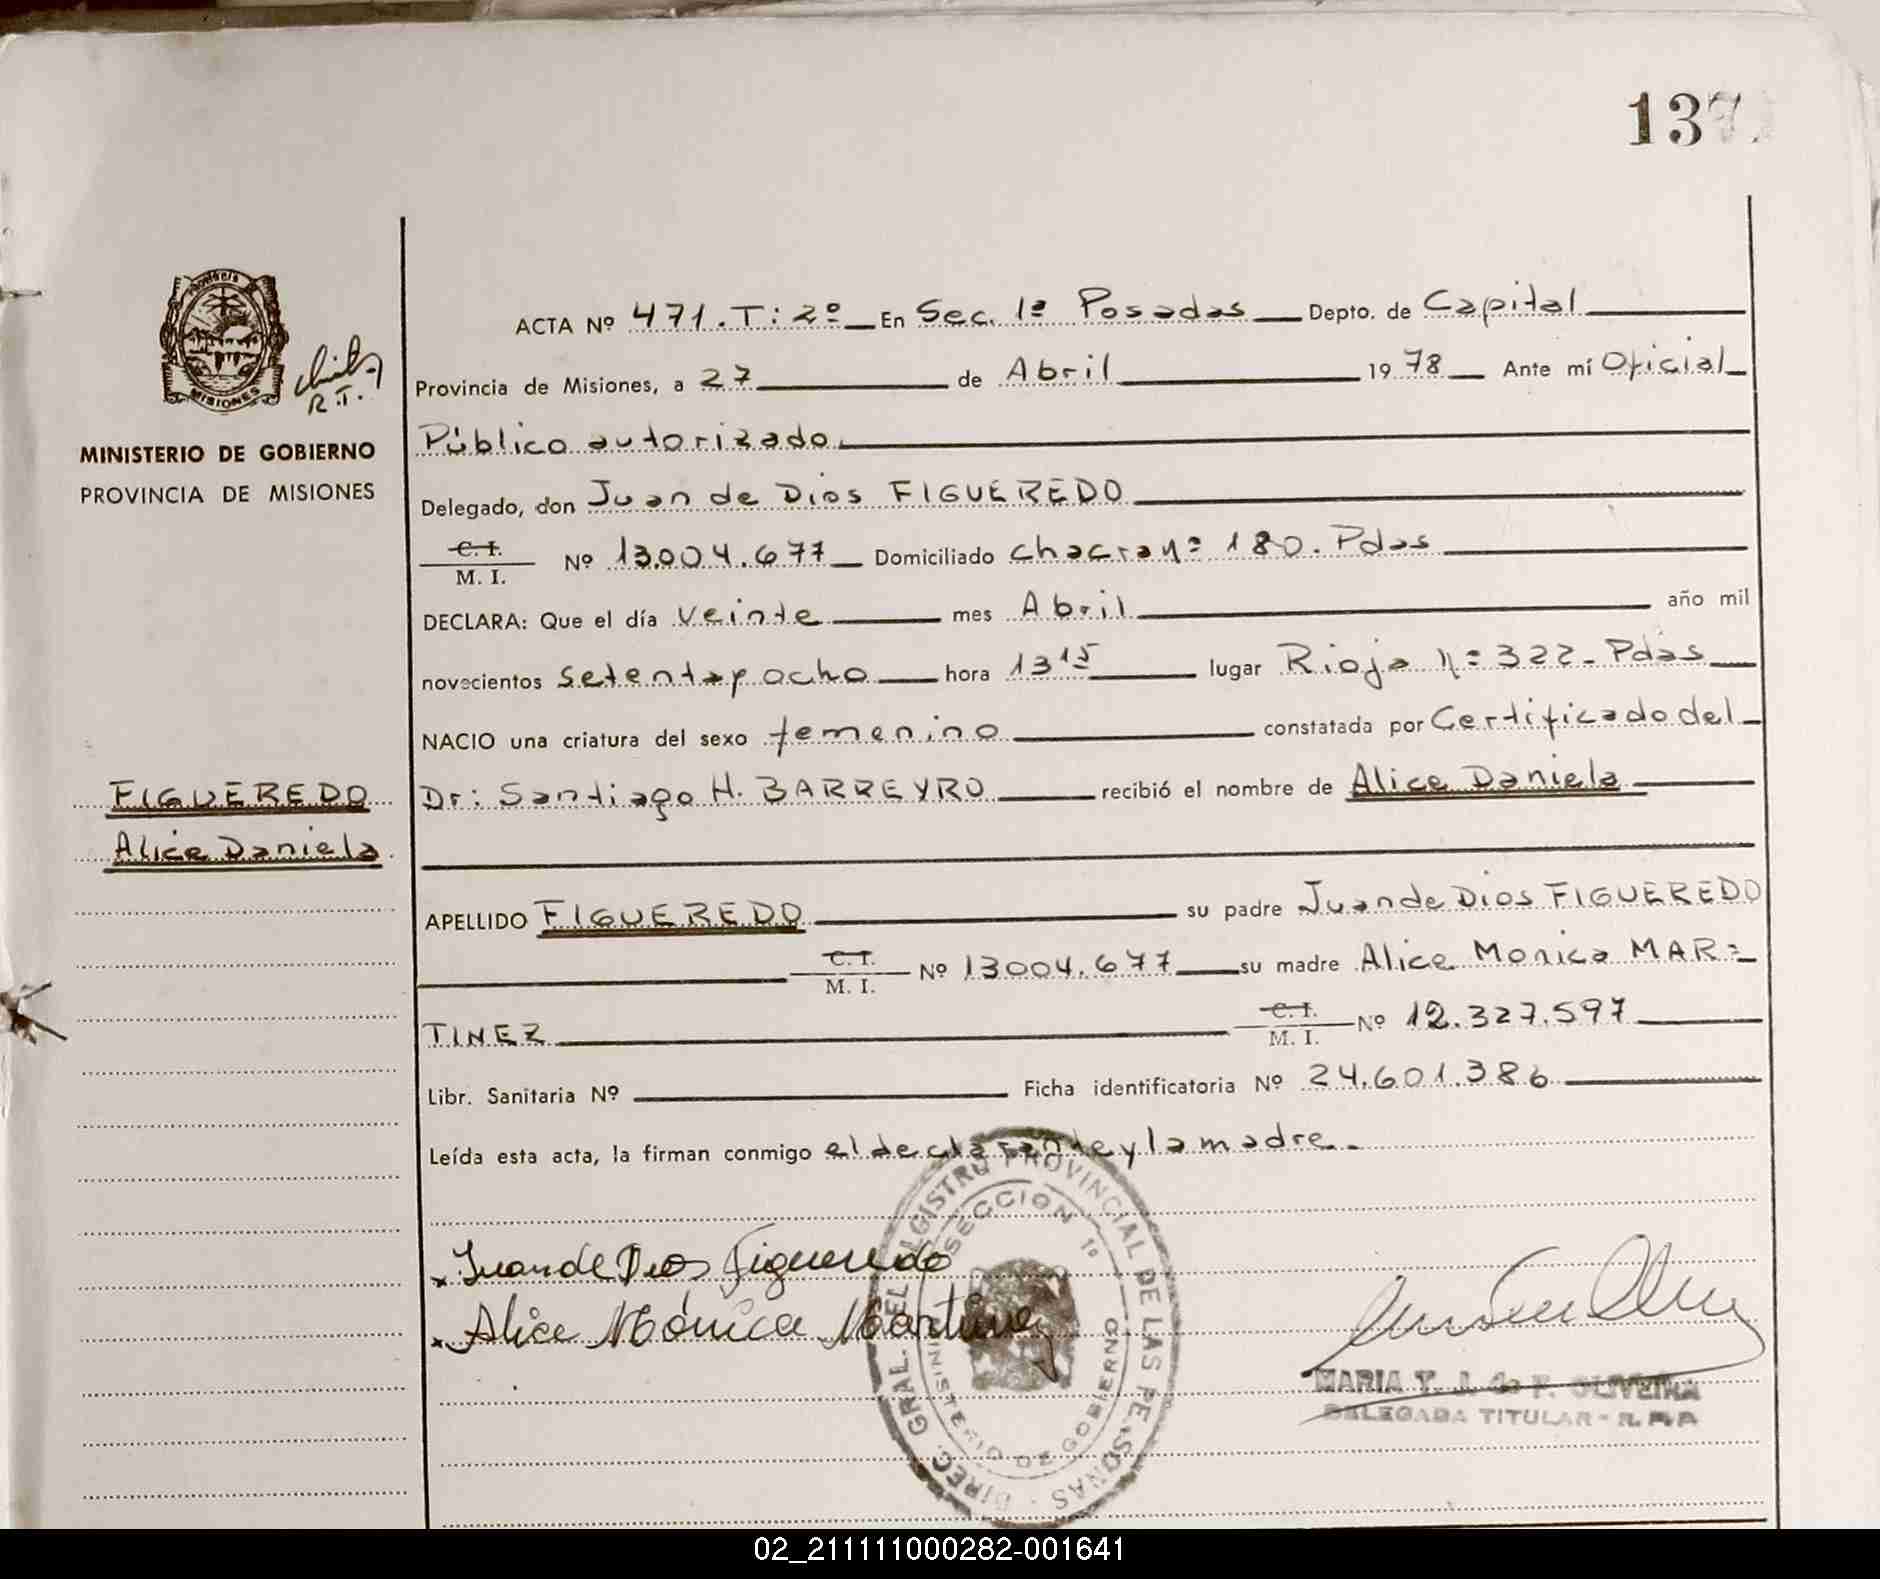 137
ACTA Nº 471.T:2º En Sec. 1ª Posadas Depto. de Capital
Provincia de Misiones, a 27 de Abril 1978 Ante mí Oficial
Público autorizado.
Delegado, don Juan de Dios FIGUEREDO
C. I.
M. I. Nº 13.004.677 Domiciliado chacra nº 180. Pdas
DECLARA: Que el día veinte mes Abril año mil
novecientos setenta y ocho hora 13 15 lugar Rioja Nº 322- Pdas
NACIO una criatura del sexo femenino constatada por Certificado del
Dr: Santiago H. BARREYRO recibió el nombre de Alice Daniela
APELLIDO FIGUEREDO su padre Juan de Dios FIGUEREDO
C. I.
M. I. Nº 13004.677 su madre Alice Monica MAR=
TINEZ C. I.
M. I. Nº 12.327.597
Libr. Sanitaria Nº Ficha identificatoria Nº 24.601.386
Leída esta acta, la firman conmigo el declarante y la madre.
x Juan de Dios Figueredo
x Alice Mónica Martinez
PROVINCIA
MISIONES
R.T.
MINISTERIO DE GOBIERNO
PROVINCIA DE MISIONES
FIGUEREDO
Alice Daniela
DIREC. GRAL. DEL REGISTRO PROVINCIAL DE LAS PERSONAS
SECCION 1º
MINISTERIO DE GOBIERNO
MARIA T. J. de F. OLIVEIRA
DELEGADA TITULAR - R.P.P
02_211111000282-001641